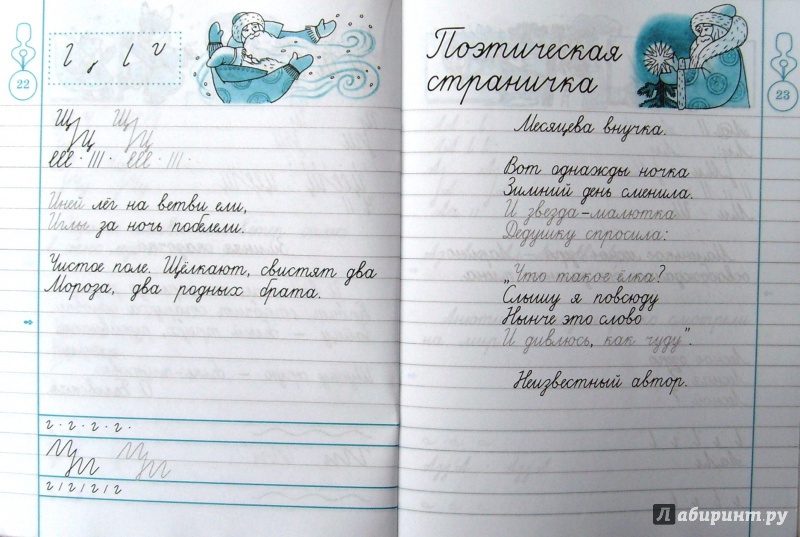 22
Щ Щ
Ц Ц
ССС · ııı · ССС · ııı ·
Иней лёг на ветви ели,
Иглы за ночь побелели.
Чистое поле. Щёлкают, свистят два
Мороза, два родных брата.
г · г · г · г ·
г ı г ı г ı г ı г
Поэтическая
страничка
23
Месяцева внучка.
Вот однажды ночка
Зимний день сменила.
И звезда-малютка
Дедушку спросила:
„Что такое ёлка?
Слышу я повсюду
Нынче это слово
И дивлюсь, как чуду".
Неизвестный автор.
Лабиринт.ру